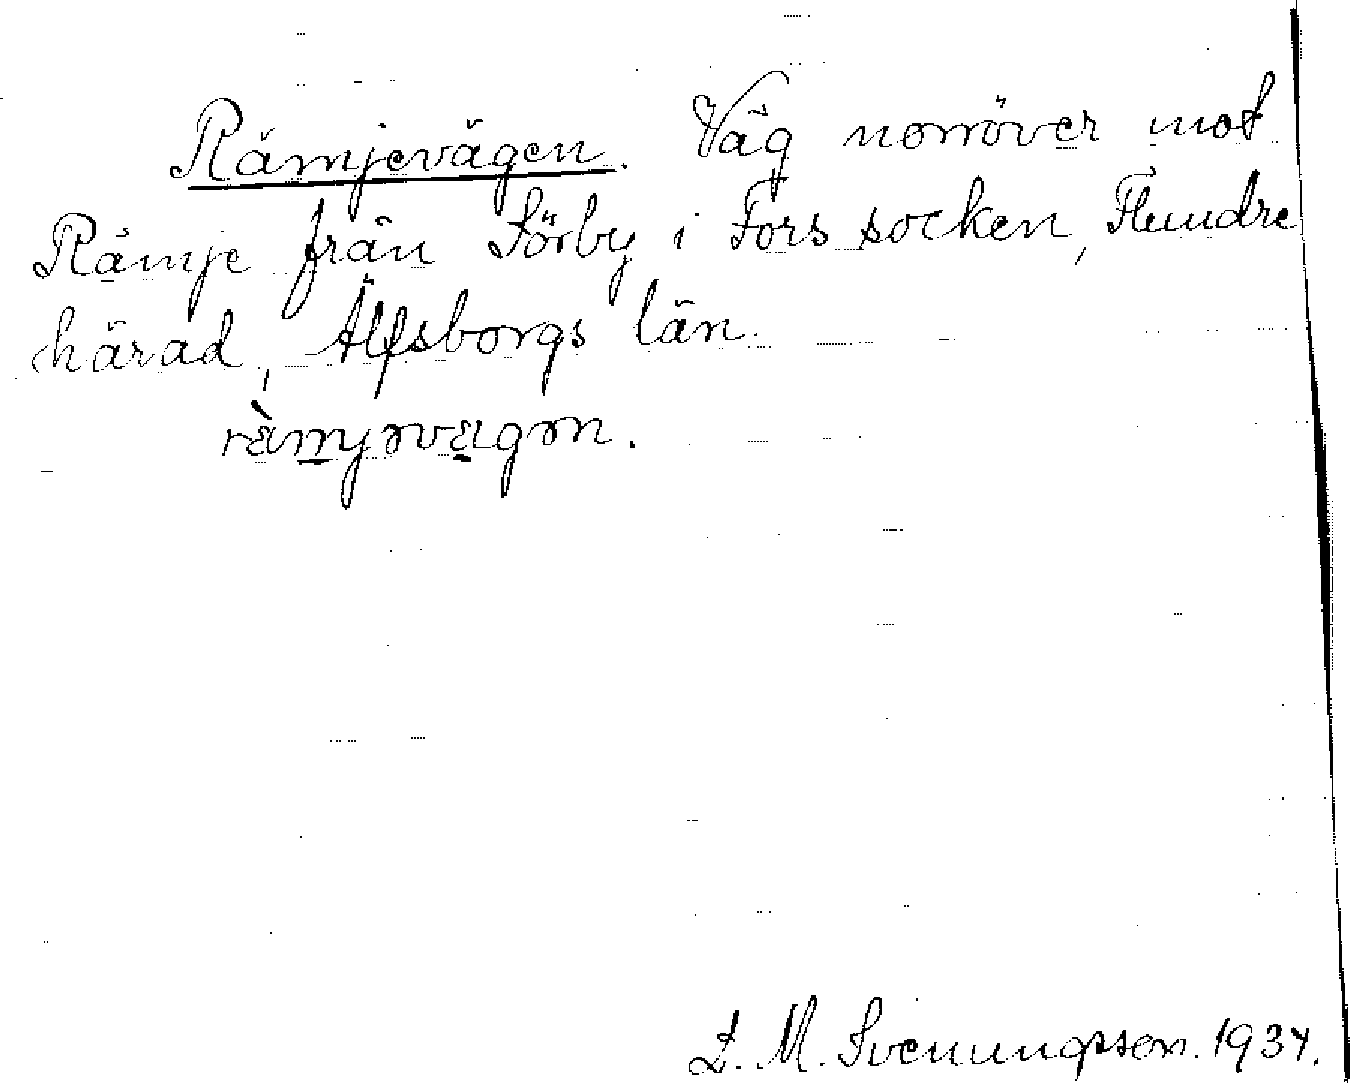 Rämjevägen. Väg norröver mot
Rämje från Sörby i Fors socken, Flundre
härad, Älfsborgs län.
ræ̀mjəvægən.
L. M. Svenungsson. 1934.